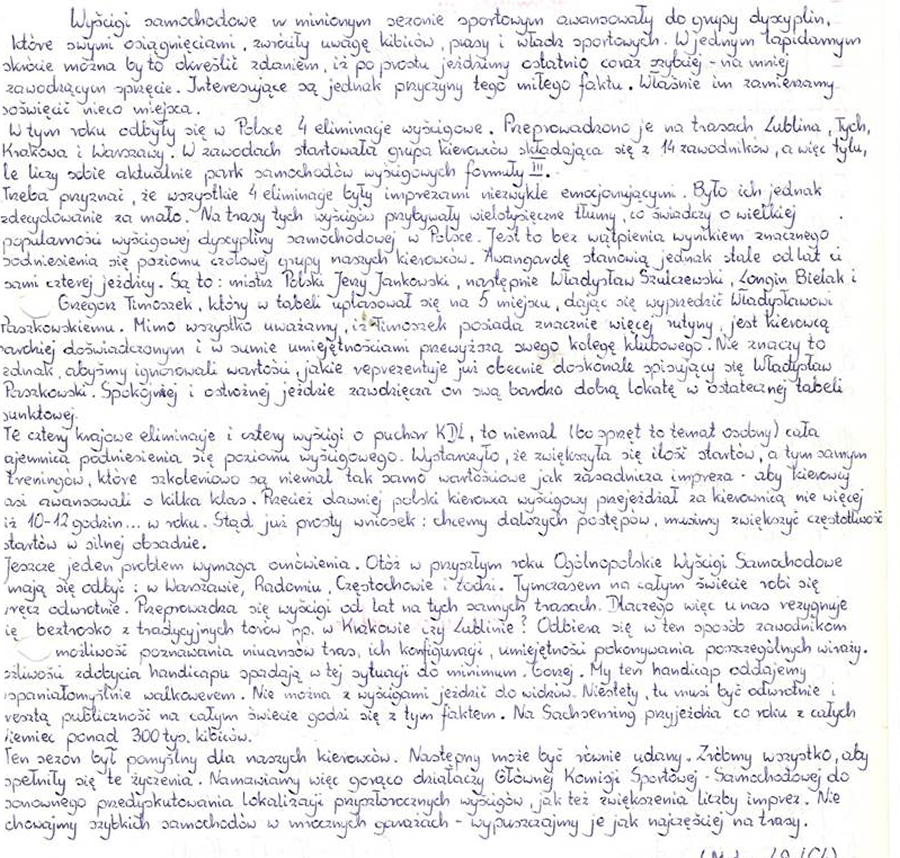 Wyścigi samochodowe w minionym sezonie sportowym awansowały do grupy dyscyplin,
które swymi osiągnięciami, zwróciły uwagę kibiców, prasy i władz sportowych. W jednym lapidarnym
skrócie można by to określić zdaniem, iż po prostu jeździmy ostatnio coraz szybciej - na mniej
zawodzącym sprzęcie. Interesujące są jednak przyczyny tego miłego faktu. Właśnie im zamierzamy
poświęcić nieco miejsca.
W tym roku odbyły się w Polsce 4 eliminacje wyścigowe. Przeprowadzono je na trasach Lublina, Tych,
Krakowa i Warszawy. W zawodach startowała grupa kierowców składająca się z 14 zawodników, a więc tylu,
le liczy sobie aktualnie park samochodów wyścigowych formuły III.
Trzeba przyznać, że wszystkie 4 eliminacje były imprezami niezwykle emocjonującymi. Było ich jednak
zdecydowanie za mało. Na trasy tych wyścigów przybywały wielotysięczne tłumy, co świadczy o wielkiej
popularności wyścigowej dyscypliny samochodowej w Polsce. Jest to bez wątpienia wynikiem znacznego
podniesienia się poziomu czołowej grupy naszych kierowców. Awangardę stanowią jednak stale od lat ci
sami czterej jeźdźcy. Są to: mistrz Polski Jerzy Jankowski, następnie Władysław Szulczewski, Longin Bielak i
Grzegorz Timoszek, który w tabeli uplasował się na 5 miejscu, dając się wyprzedzić Władysławowi
Paszkowskiemu. Mimo wszystko uważamy, iż Timoszek posiada znacznie więcej rutyny, jest kierowcą
bardziej doświadczonym i w sumie umiejętnościami przewyższa swego kolegę klubowego. Nie znaczy to
jednak, abyśmy ignorowali wartości, jakie reprezentuje już obecnie doskonale spisujący się Władysław
Paszkowski. Spokojnej i ostrożnej jeździe zawdzięcza on swą bardzo dobrą lokatę w ostatecznej tabeli
punktowej.
Te cztery krajowe eliminacje i cztery wyścigi o puchar KDL, to niemal (bo sprzęt to temat osobny) cała
ajemnica podniesienia się poziomu wyścigowego. Wystarczyło, że zwiększyła się ilość startów, a tym samym
treningów, które szkoleniowo są niemal tak samo wartościowe jak zasadnicza impreza - aby kierowcy
asi awansowali o kilka klas. Przecież dawniej polski kierowca wyścigowy przejeździał za kierownicą nie więcej
iż 10-12 godzin... w roku. Stąd już prosty wniosek: chcemy dalszych postępów, musimy zwiększyć częstotliwość
startów w silnej obsadzie.
Jeszcze jeden problem wymaga omówienia. Otóż w przyszłym roku Ogólnopolskie Wyścigi Samochodowe
mają się odbyć: w Warszawie, Radomiu, Częstochowie i Łodzi. Tymczasem na całym świecie robi się
wręcz odwrotnie. Przeprowadza się wyścigi od lat na tych samych trasach. Dlaczego więc u nas rezygnuje
ię beztrosko z tradycyjnych torów np. w Krakowie czy Lublinie? Odbiera się w ten sposób zawodnikom
możliwość poznawania niuansów tras, ich konfiguracji, umiejętności pokonywania poszczególnych wiraży.
ożliwości zdobycia handicapu spadają w tej sytuacji do minimum. Gorzej. My ten handicap oddajemy
spaniałomyślnie walkowerem. Nie można z wyścigami jeździć do widzów. Niestety, tu musi być odwrotnie i
resztą publiczność na całym świecie godzi się z tym faktem. Na Sachsenring przyjeżdża co roku z całych
Niemiec ponad 300 tys. kibiców.
Ten sezon był pomyślny dla naszych kierowców. Następny może być równie udany. Zróbmy wszystko, aby
spełniły się te życzenia. Namawiamy więc gorąco działaczy Głównej Komisji Sportowej - Samochodowej do
ponownego przedyskutowania lokalizacji przyszłorocznych wyścigów, jak też zwiększenia liczby imprez. Nie
chowajmy szybkich samochodów w mrocznych garażach - wypuszczajmy je jak najczęściej na trasy.